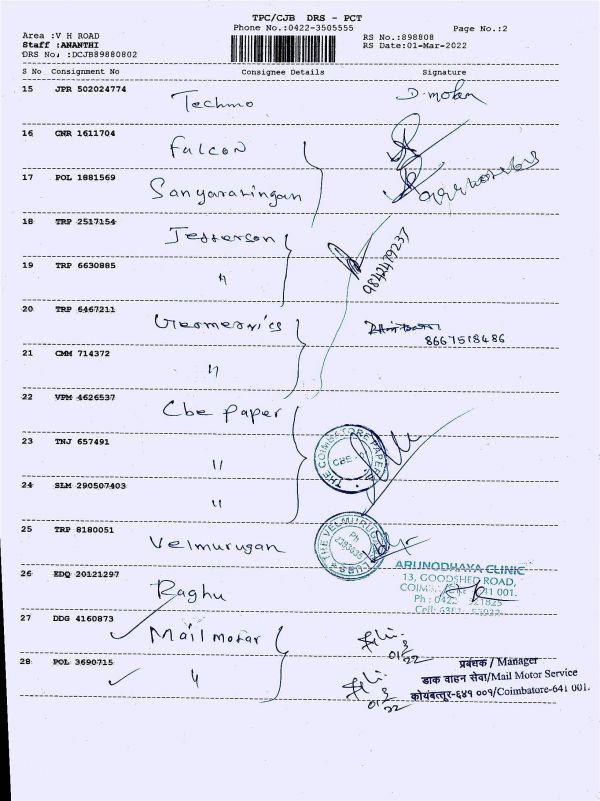 TPC/CJB DRS - PCT
Phone No.:0422-3505555
Page No.:2
Area :V H ROAD
RS No.:898808
Staff :ANANTHI
RS Date:01-Mar-2022
DRS No. :DCJB89880802
S No Consignment No Consignee Details Signature
15 JPR 502024774 Techmo D.mohan
16 CNR 1611704 Falcon
17 POL 1881569
18 TRP 2517154 Jefferson
9842479237
19 TRP 6630885 "
20 TRP 6467211
8667518486
21 CMM 714372 "
22 VPM 4626537 Cbe paper
23 TNJ 657491 "
THE COIMBATORE PAPER
CBE
24 SLM 290507403 "
25 TRP 8180051 Velmurugan
THE VELMURUGAN
Ph
26 EDQ 20121297 Raghu
ARUNODHAYA CLINIC
13, GOODSHED ROAD,
641 001.
27 DDG 4160873 Mail motor
01/3/22
28 POL 3690715 "
01/3/22
प्रबंधक / Manager
डाक वाहन सेवा/Mail Motor Service
कोयंबत्तुर-६४१ ००१/Coimbatore-641 001.